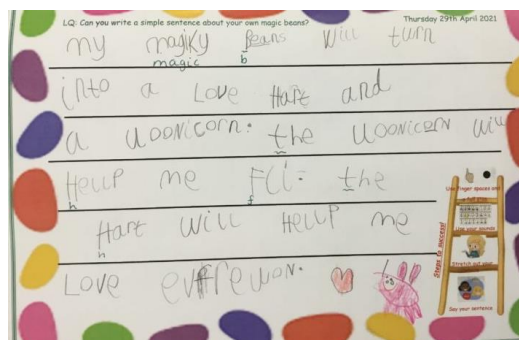 L.Q: Can you write a simple sentence about your own magic beans?
Thursday 29th April 2021
my magiky Beans will turn
magic b
into a Love Hart and
a uoonicorn. the uoonicorn will
Hellp me Fli. the
h f
Hart will Hellp me
h
Love evffrewon.
Steps to success!
Use finger spaces and
Use your sounds
Stretch out your
Say your sentence